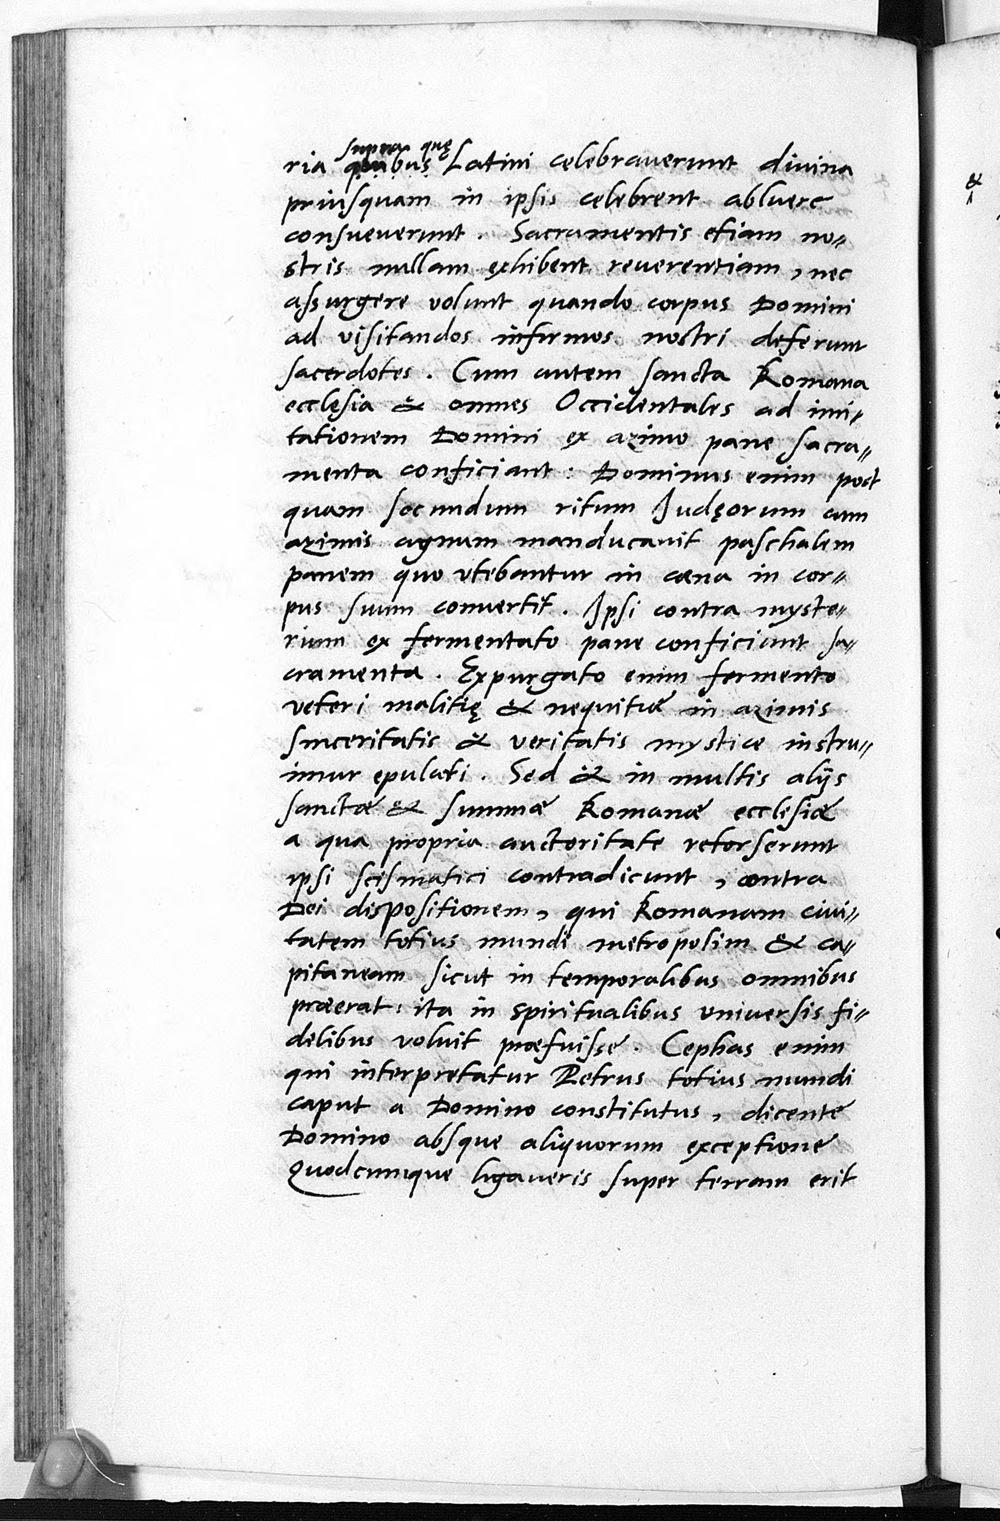 supra quę
ria quibus Latini celebrauerunt diuina
priusquam in ipsis celebrent abluere
consueuerunt. Sacramentis etiam no=
stris nullam exhibent reuerentiam, nec
assurgere volunt quando corpus Domini
ad visitandos infirmos nostri deferunt
sacerdotes. Cum autem sancta Romana
ecclesia & omnes Occidentales ad imi=
tationem Domini ex azimo pane sacra=
menta conficiant: Dominus enim post
quam secundum ritum Judęorum cum
azimis agnum manducauit paschalem
panem quo vtebantur in cœna in cor=
pus suum conuertit. Ipsi contra myste=
rium ex fermentato pane conficiunt sa=
cramenta. Expurgato enim fermento
veteri malitię & nequitiæ in azimis
sinceritatis & veritatis mystice instru=
imur epulati. Sed & in multis alijs
sanctæ & summæ Romanæ ecclesiæ
a qua propria auctoritate retorserunt
ipsi scismatici contradicunt, contra
Dei dispositionem, qui Romanam ciui=
tatem totius mundi metropolim & ca=
pitaneam sicut in temporalibus omnibus
præerat: ita in spiritualibus vniuersis fi=
delibus voluit præfuisse. Cephas enim
qui interpretatur Petrus totius mundi
caput a Domino constitutus, dicente
Domino absque aliquorum exceptione
Quodcumque ligaueris super terram erit
&